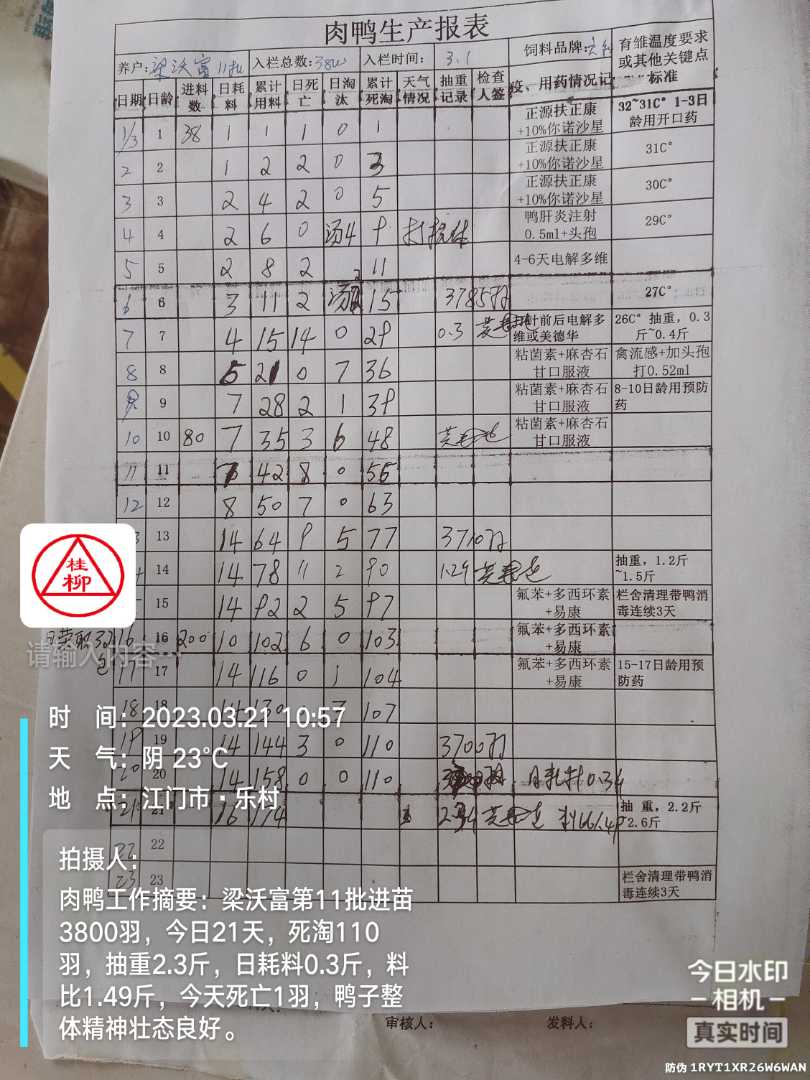 肉鸭生产报表
养户: 梁沃富11批 入栏总数: 3800 入栏时间: 3.1 饲料品牌: 育雏温度要求或其他关键点标准
日期 日龄 进料数 日耗料 累计用料 日死亡 日淘汰 累计死淘 天气情况 抽重记录 检查人签 疫、用药情况记
1/3 1 38 1 1 1 0 1 正源扶正康+10%你诺沙星 32~31C° 1-3日龄用开口药
2 2 1 2 2 0 3 正源扶正康+10%你诺沙星 31C°
3 3 2 4 2 0 5 正源扶正康+10%你诺沙星 30C°
4 4 2 6 0 汤4 9 打抗体 鸭肝炎注射0.5ml+头孢 29C°
5 5 2 8 2 11 4-6天电解多维
6 6 3 11 2 15 3785羽 27C°
7 7 4 15 14 0 29 0.3 针前后电解多维或美德华 26C° 抽重，0.3斤~0.4斤
8 8 5 21 0 7 36 粘菌素+麻杏石甘口服液 禽流感+加头孢打0.52ml
9 7 28 2 1 39 粘菌素+麻杏石甘口服液 8-10日龄用预防药
10 10 80 7 35 3 6 48 粘菌素+麻杏石甘口服液
11 11 7 42 8 0 56
12 12 8 50 7 0 63
13 14 64 9 5 77 3710羽
14 14 78 11 2 90 1.29 抽重，1.2斤~1.5斤
15 14 92 2 5 97 氟苯+多西环素+易康 栏舍清理带鸭消毒连续3天
16 16 200 10 102 6 0 103 氟苯+多西环素+易康
17 17 14 116 0 1 104 氟苯+多西环素+易康 15-17日龄用预防药
18 18 14 130 3 107
19 19 14 144 3 0 110 3700羽
20 20 14 158 0 0 110 日耗料0.34
21 21 16 174 2.34 抽 重，2.2斤~2.6斤
22 22
23 23 栏舍清理带鸭消毒连续3天
审核人: 发料人:
桂柳
请输入内容
时 间：2023.03.21 10:57
天 气：阴 23℃
地 点：江门市·乐村
拍摄人：
肉鸭工作摘要：梁沃富第11批进苗
3800羽，今日21天，死淘110
羽，抽重2.3斤，日耗料0.3斤，料
比1.49斤，今天死亡1羽，鸭子整
体精神壮态良好。
今日水印
-相机-
真实时间
防伪 1RYT1XR26W6WAN